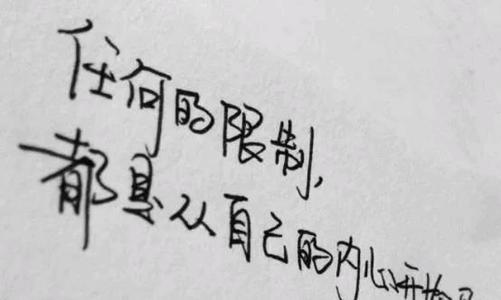 任何的限制,
都是从自己的内心开始